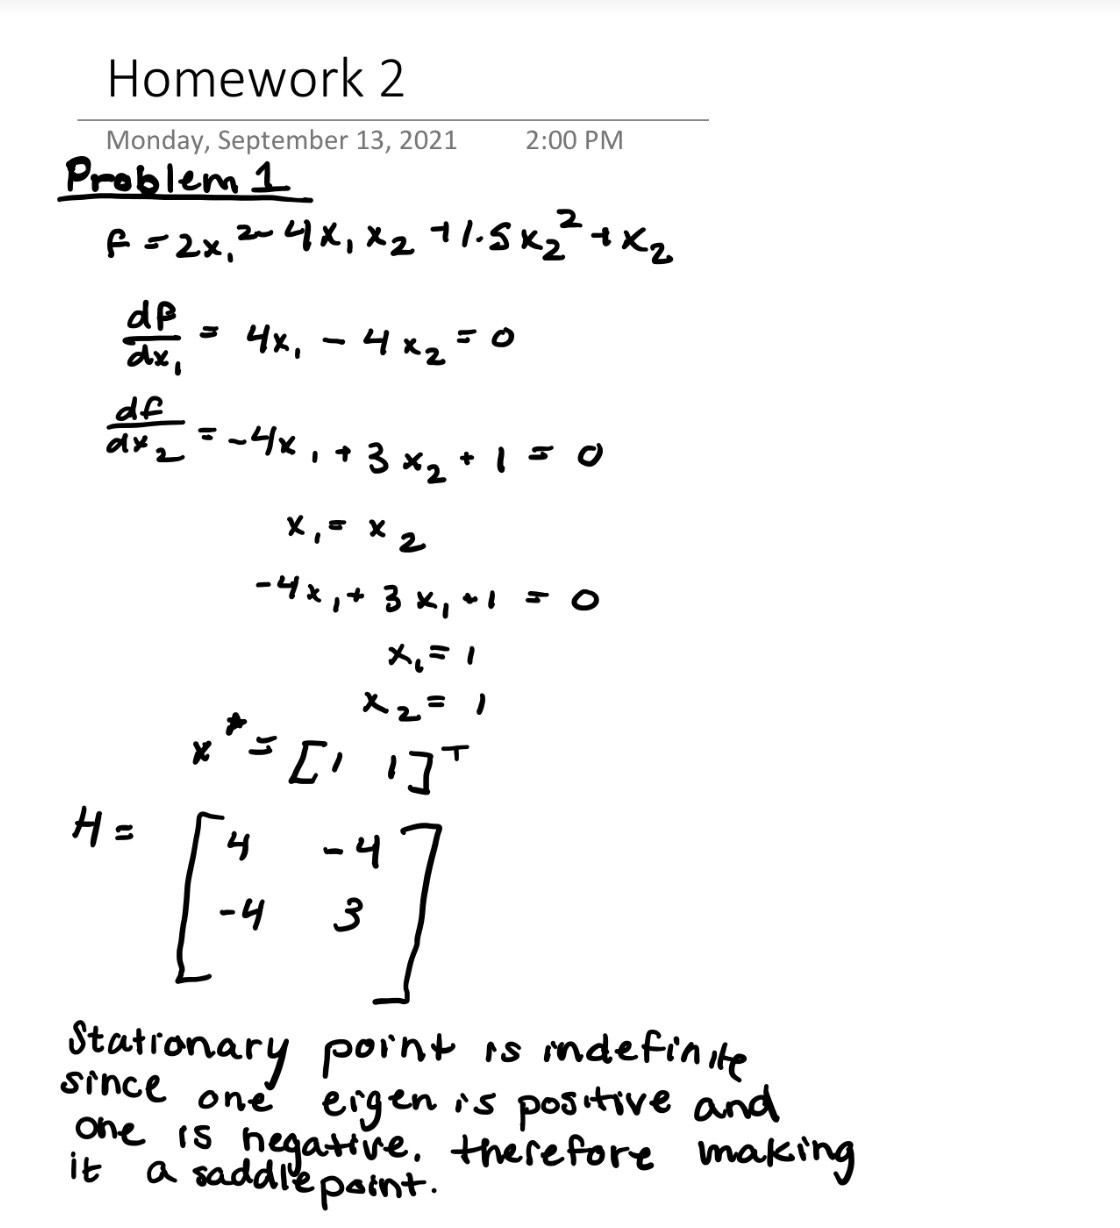 Homework 2
Monday, September 13, 2021 2:00 PM
Problem 1
f = 2x₁² - 4x₁x₂ + 1.5x₂² + x₂
df/dx₁ = 4x₁ - 4x₂ = 0
df/dx₂ = -4x₁ + 3x₂ + 1 = 0
x₁ = x₂
-4x₁ + 3x₁ + 1 = 0
x₁ = 1
x₂ = 1
x* = [1 1]ᵀ
H = [4 -4
-4 3]
Stationary point is indefinite
since one eigen is positive and
one is negative. therefore making
it a saddle point.